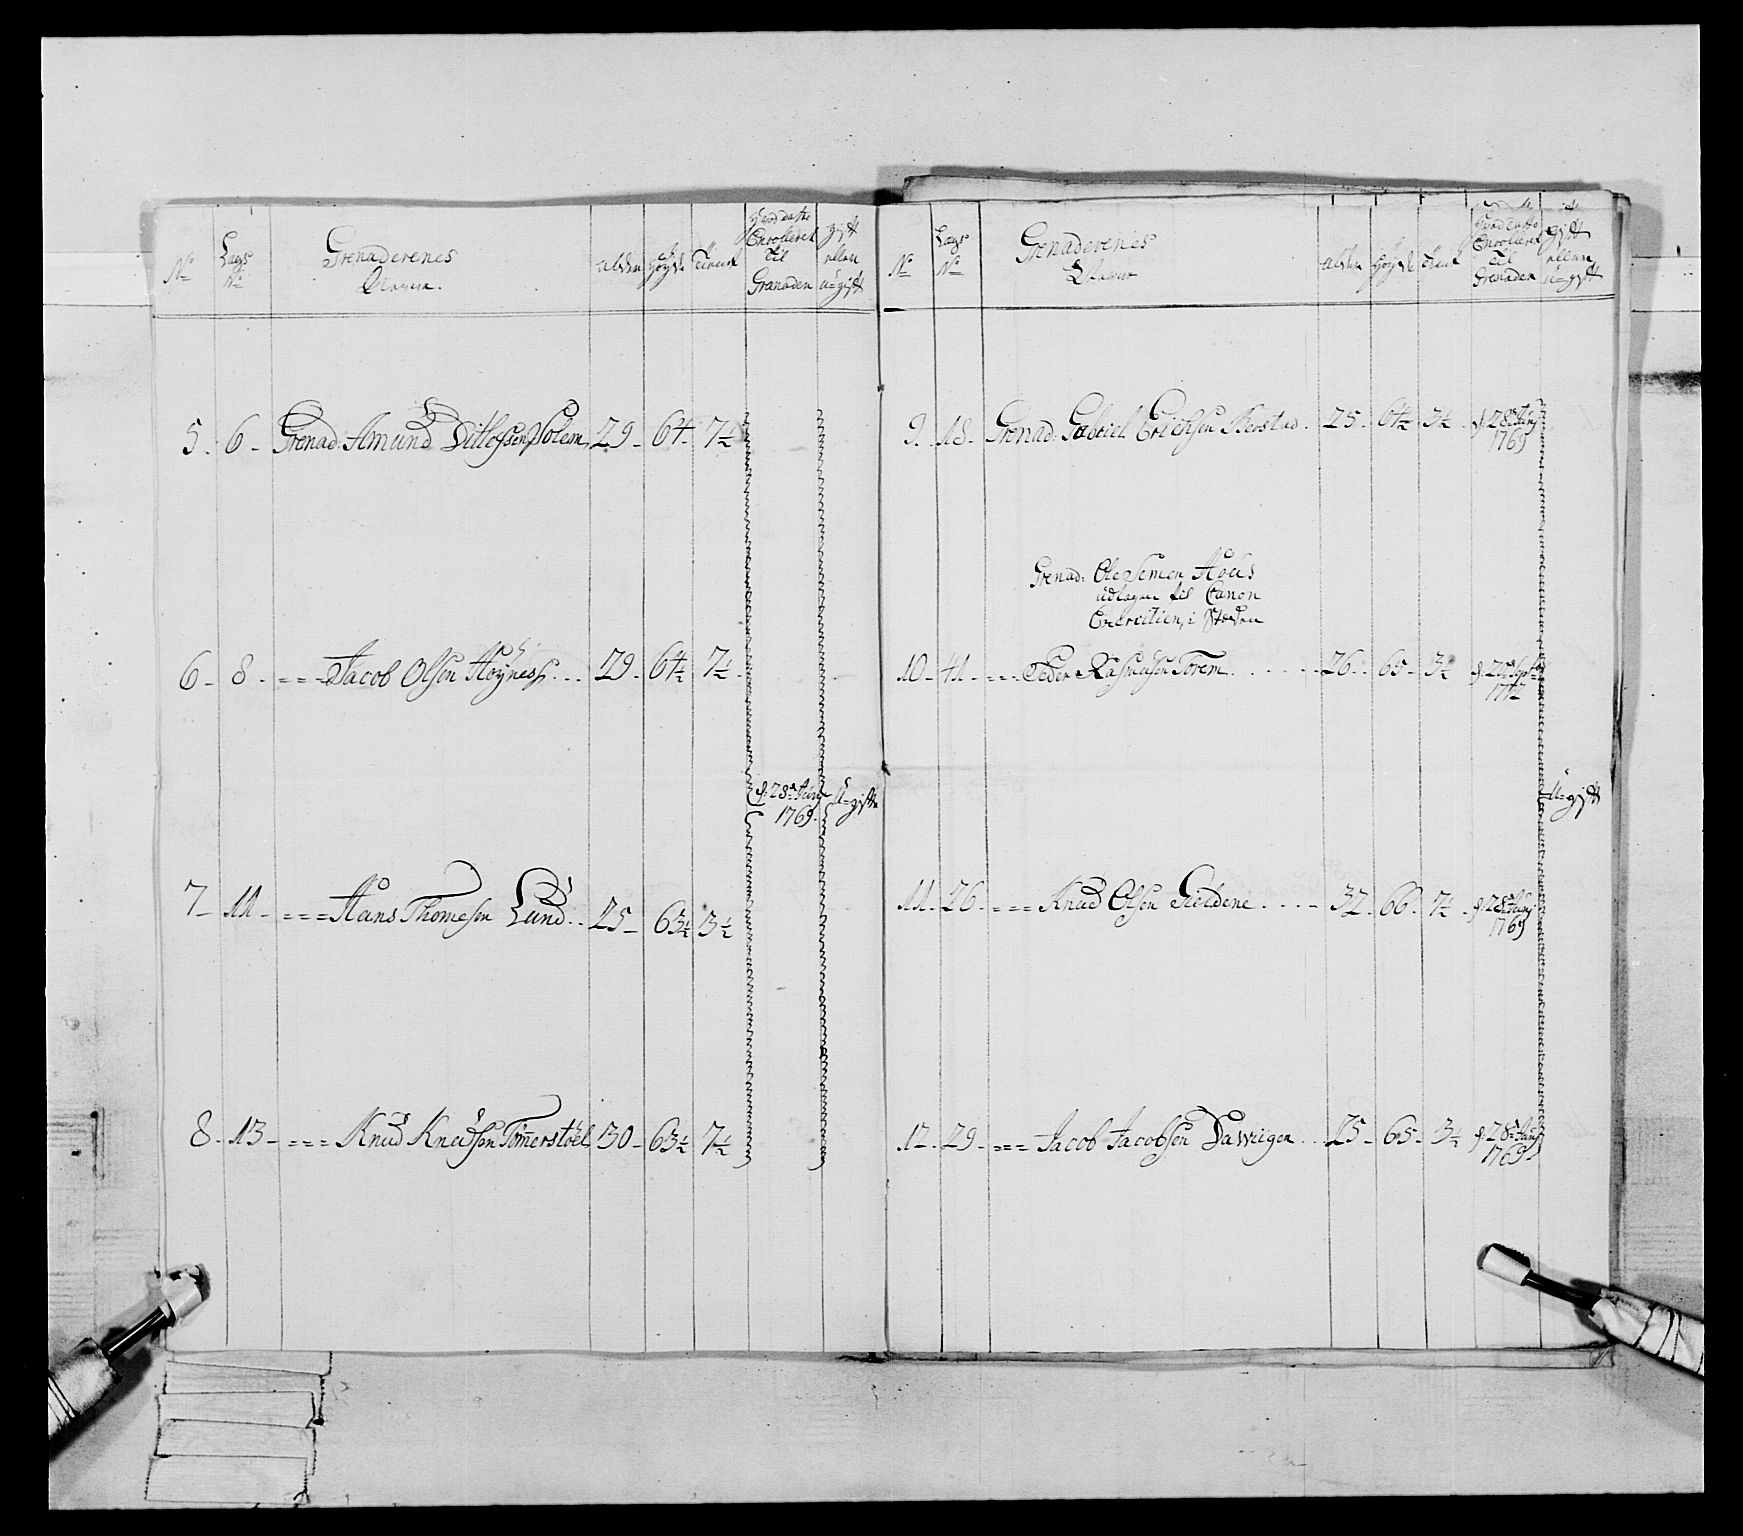 No
Lægs
No
Grenaderenes
Navne.
alder
Høyde
tienst
hvad datto
Enrolleret
til
Granader
gift
eller
u=gift
5. 6 - Grenad. Amund Ditlefsen Solem, 29 - 64 - 7½
6 - 8 - === Jacob Olsen Høyness... 29. 64½ 7½
d: 28de Juny 1769. U=gifte
7 - 11 - === Hans Thomesen Lund.. 25 - 63½ 3½
8 - 13 - === Knud Knudsen Tømerstøel 30 - 63½ 7½
No
Lægs
No
Grenaderenes
Navne
alder
Høyde
tienst
hvad datto
Enrolleret
til
Grenader
gift
eller
u=gift
9. 18 - Grenad. Gabriel Erichsen Berstad. 25. 64½ 3½ d: 28de Juny
1769
Grenad: Ole Semen Aous
udtagen til Canon
Exercitien, i Steden
10 - 41 - === Peder Rasmusen Torem 26. 65 - 3½ d: 21de Sept
1772
U=gift
11 - 26 - === Knud Olsen Gieldene .... 32. 66. 7½ d: 28de Juny
1769
12 - 29 - === Jacob Jacobsen Dawigen .. 25 - 65 - 3½ d: 28de Juny
1769